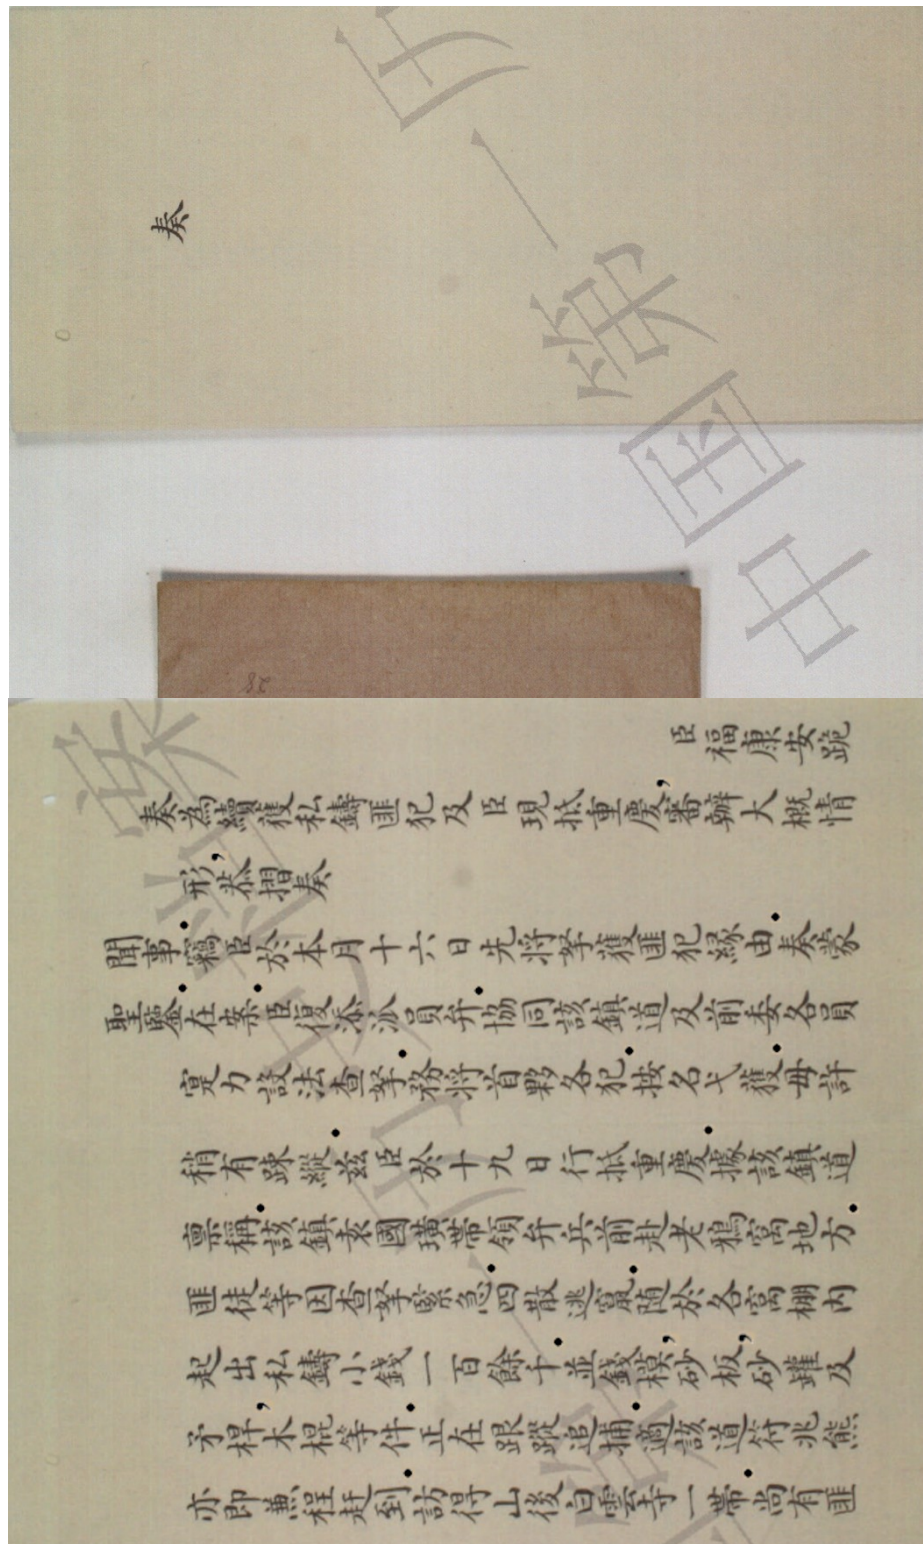 奏
臣福康安跪
奏為續獲私鑄匪犯及臣現抵重慶,審辦大概情
形,恭摺奏
聞事·竊臣於本月十六日先將拏獲匪犯緣由·奏蒙
聖鑒·在案·臣復添派員弁·協同該鎮道及前委各員
寔力設法查拏·務將首夥各犯·按名弋獲·毋許
稍有踈縱·茲臣於十九日行抵重慶·據該鎮道
禀稱·該鎮袁國璜帶領弁兵前赴老鴉窩地方·
匪徒等因查拏緊急·四散逃竄·随於各窩棚内
起出私鑄小錢一百餘千·並錢模,砂板,砂罐及
矛桿,木棍等件·正在跟蹤追捕·適該道符兆熊
亦即兼程赶到·訪得山後白雲寺一帶·尚有匪
28
中国第一历
史档案
中国第一历